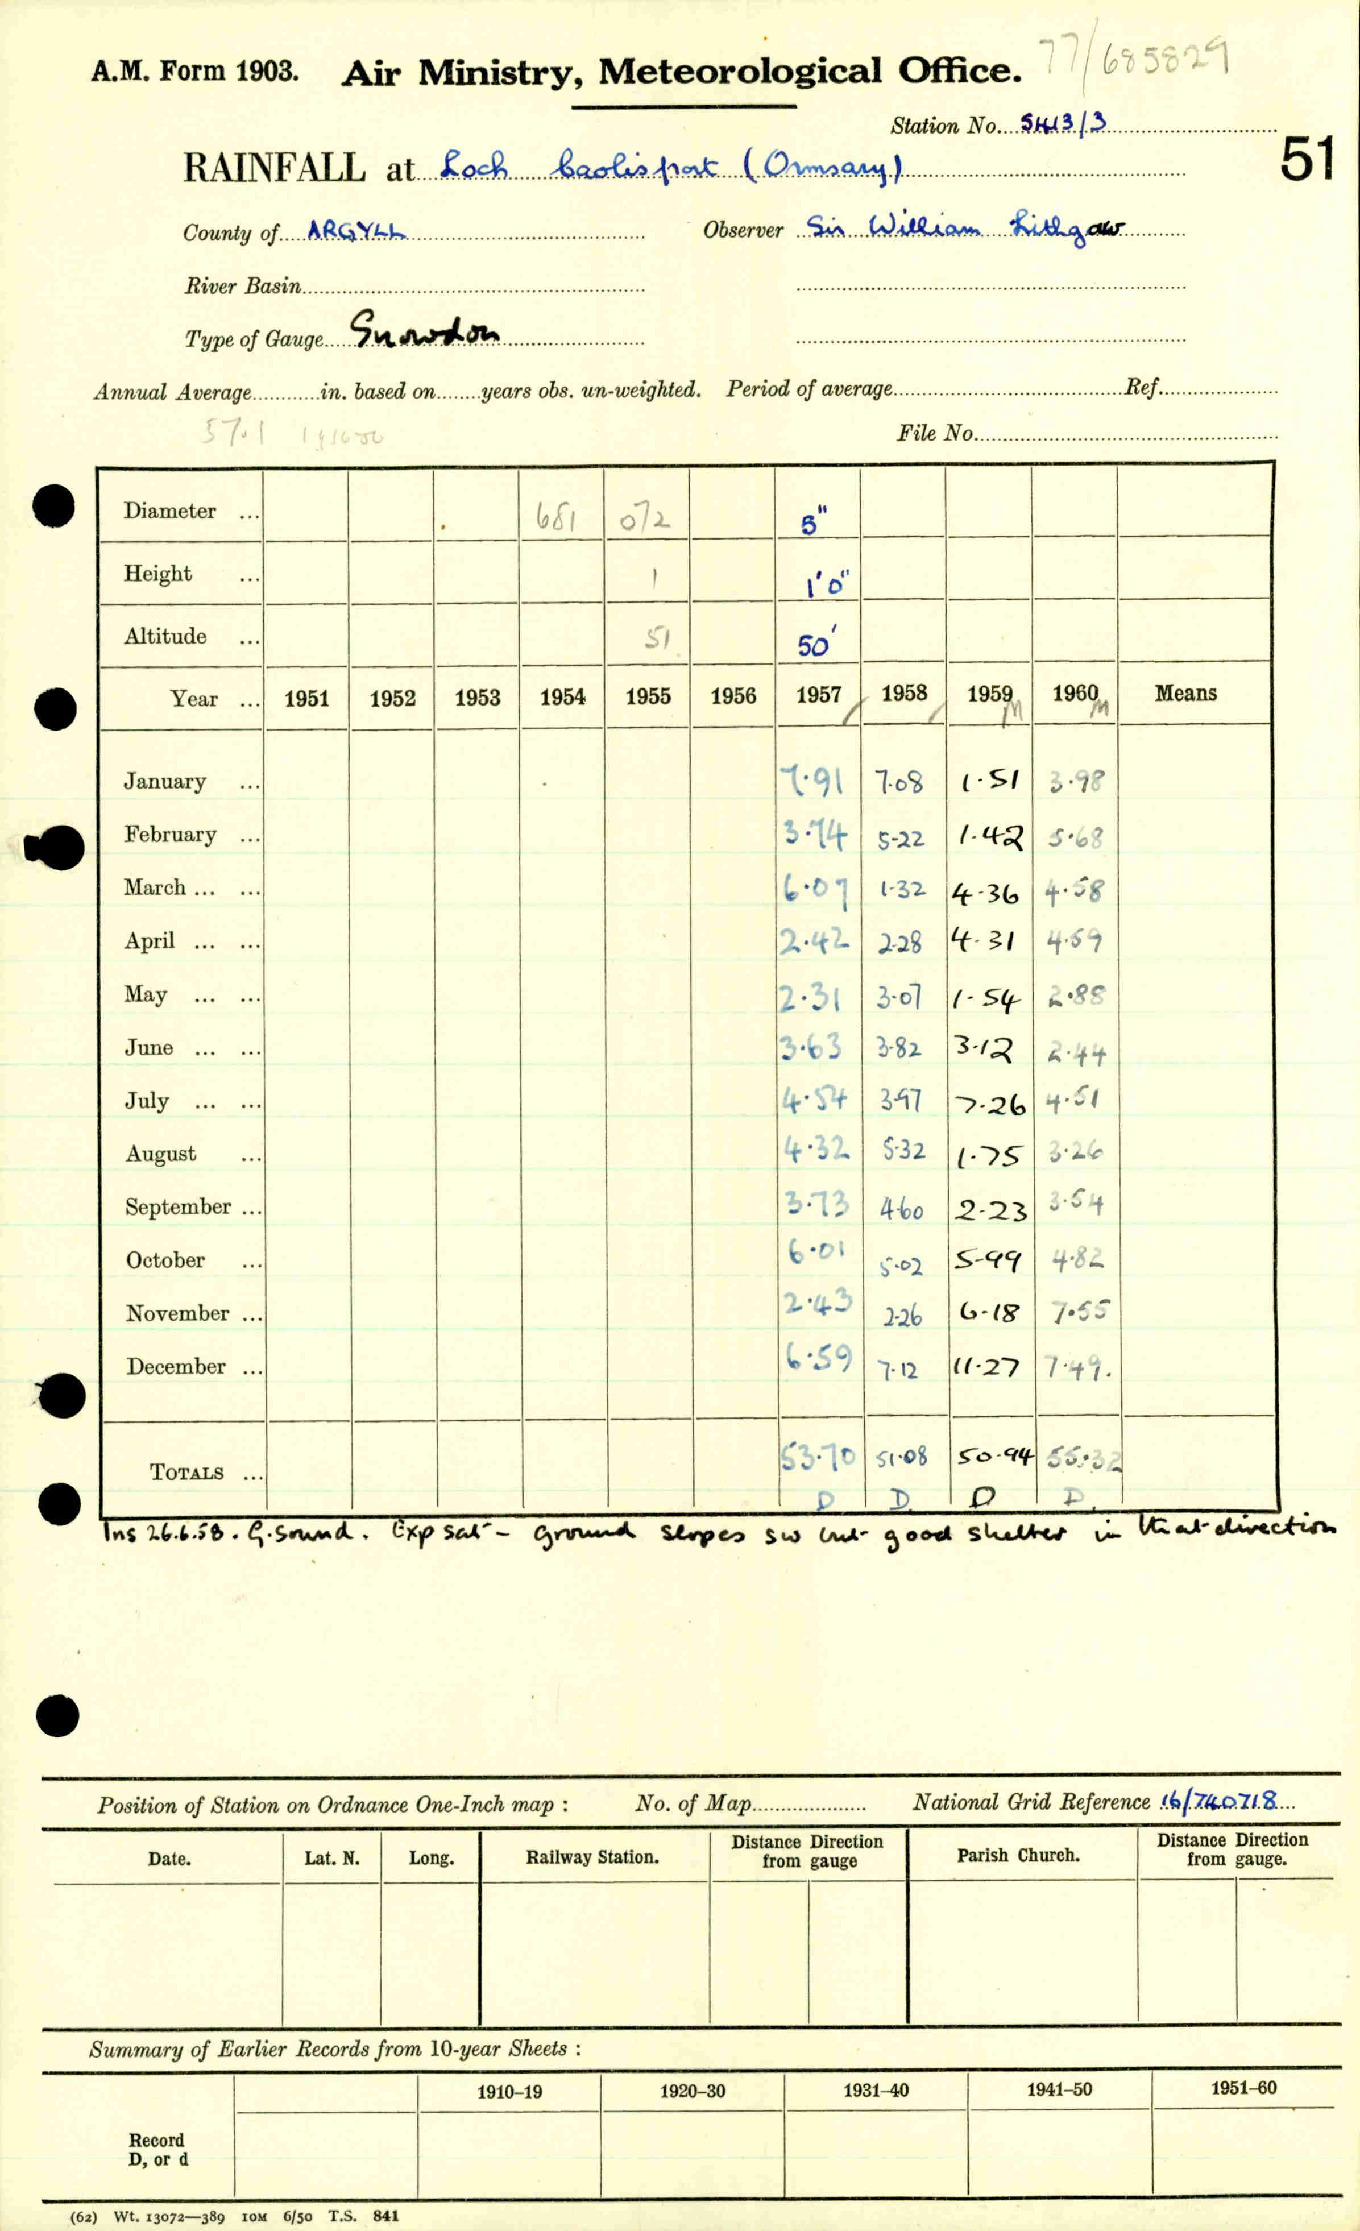 77/685829
A.M. Form 1903. Air Ministry, Meteorological Office.
Station No. 5413/3
51
RAINFALL at Loch Caolisport (Ormsary)
County of ARGYLL Observer Sir William Lithgow
River Basin
Type of Gauge Snowdon
Annual Average in. based on years obs. un-weighted. Period of average Ref.
57.1
File No.
Diameter ... 681 072 5"
Height ... 1 1'0"
Altitude ... 51 50'
Year ... 1951 1952 1953 1954 1955 1956 1957 1958 1959 M 1960 M Means
January ... 7.91 7.08 1.51 3.98
February ... 3.74 5.22 1.42 5.68
March ... ... 6.07 1.32 4.36 4.58
April ... ... 2.42 2.28 4.31 4.59
May ... ... 2.31 3.07 1.54 2.88
June ... ... 3.63 3.82 3.12 2.44
July ... ... 4.54 3.97 7.26 4.51
August ... 4.32 5.32 1.75 3.26
September ... 3.73 4.60 2.23 3.54
October ... 6.01 5.02 5.99 4.82
November ... 2.43 2.26 6.18 7.55
December ... 6.59 7.12 11.27 7.49.
TOTALS ... 53.70 51.08 50.94 55.32
D D D D.
Ins 26.6.58. G.Sound. Exp sat - ground slopes SW but good shelter in that direction
Position of Station on Ordnance One-Inch map : No. of Map National Grid Reference 16/740718
Date. Lat. N. Long. Railway Station. Distance Direction from gauge Parish Church. Distance Direction from gauge.
Summary of Earlier Records from 10-year Sheets :
1910–19 1920–30 1931–40 1941–50 1951–60
Record
D, or d
(62) Wt. 13072—389 10M 6/50 T.S. 841